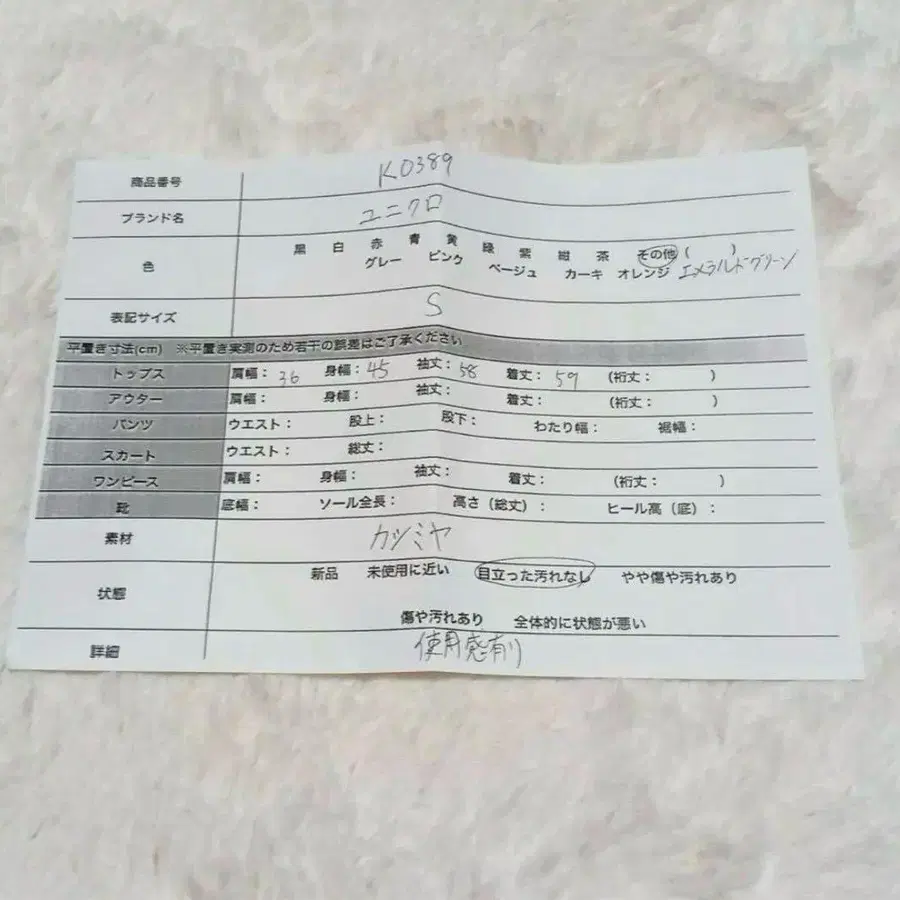 商品番号 K0389
ブランド名 ユニクロ
色 黒 白 赤 青 黄 緑 紫 紺 茶 その他 ( )
グレー ピンク ベージュ カーキ オレンジ エメラルドグリーン
表記サイズ S
平置き寸法(cm) ※平置き実測のため若干の誤差はご了承ください
トップス 肩幅: 36 身幅: 45 袖丈: 58 着丈: 59 (裄丈: )
アウター 肩幅: 身幅: 袖丈: 着丈: (裄丈: )
パンツ ウエスト: 股上: 股下: わたり幅: 裾幅:
スカート ウエスト: 総丈:
ワンピース 肩幅: 身幅: 袖丈: 着丈: (裄丈: )
靴 底幅: ソール全長: 高さ(総丈): ヒール高(底):
素材 カシミヤ
状態 新品 未使用に近い 目立った汚れなし やや傷や汚れあり
傷や汚れあり 全体的に状態が悪い
詳細 使用感有り